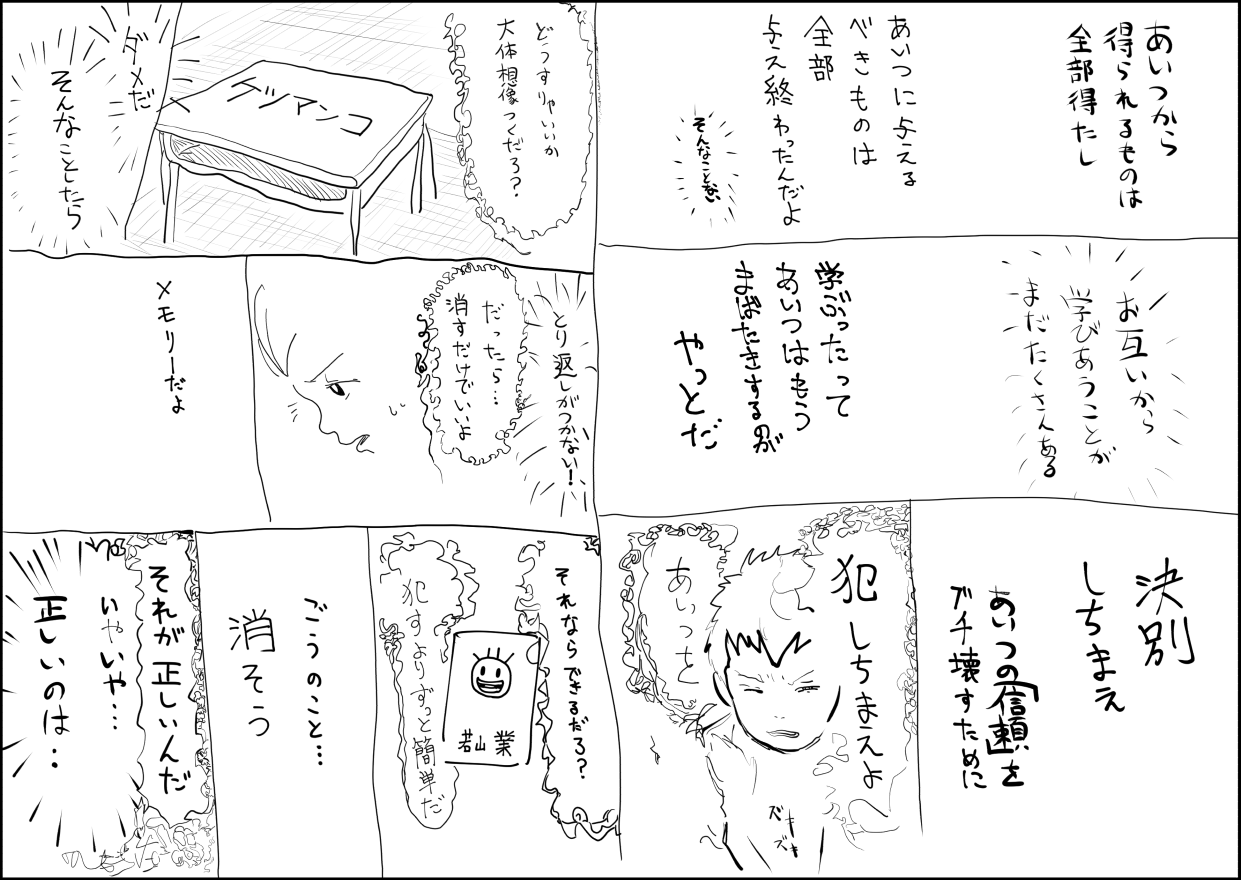 あいつから
得られるものは
全部得たし
あいつに与える
べきものは
全部
与え終わったんだよ
そんなことない
お互いから
学びあうことが
まだたくさんある
学ぶったって
あいつはもう
まばたきするのが
やっとだ
決別
しちまえ
あいつの「信頼」を
ブチ壊すために
犯しちまえよ
あいつを
ズキ
ズキ
どうすりゃいいか
大体想像つくだろ？
ケツマンコ
ダメだ
そんなことしたら
とり返しがつかない！
だったら…
消すだけでいいよ
メモリーだよ
それならできるだろ？
犯すよりずっと簡単だ
業
ごうのこと…
消そう
それが正しいんだ
いやいや…
正しいのは…